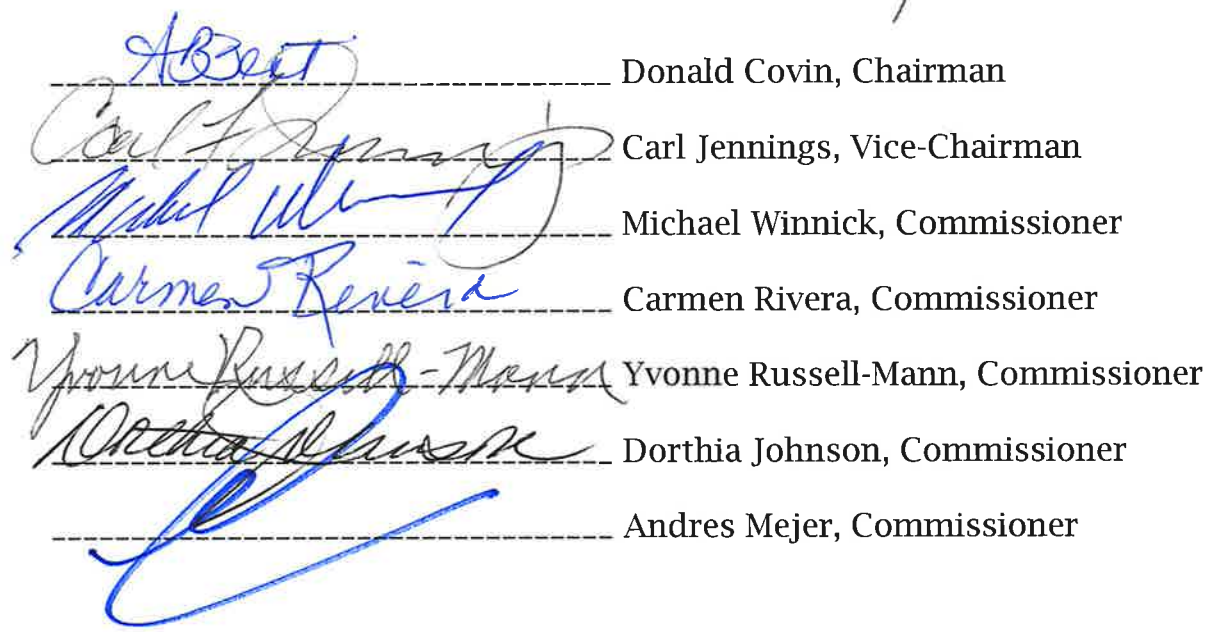 ABSent Donald Covin, Chairman
Carl F Jennings Carl Jennings, Vice-Chairman
Michael Winnick, Commissioner
Carmen Rivera Carmen Rivera, Commissioner
Yvonne Russell-Mann Yvonne Russell-Mann, Commissioner
Dorthia Johnson Dorthia Johnson, Commissioner
Andres Mejer, Commissioner